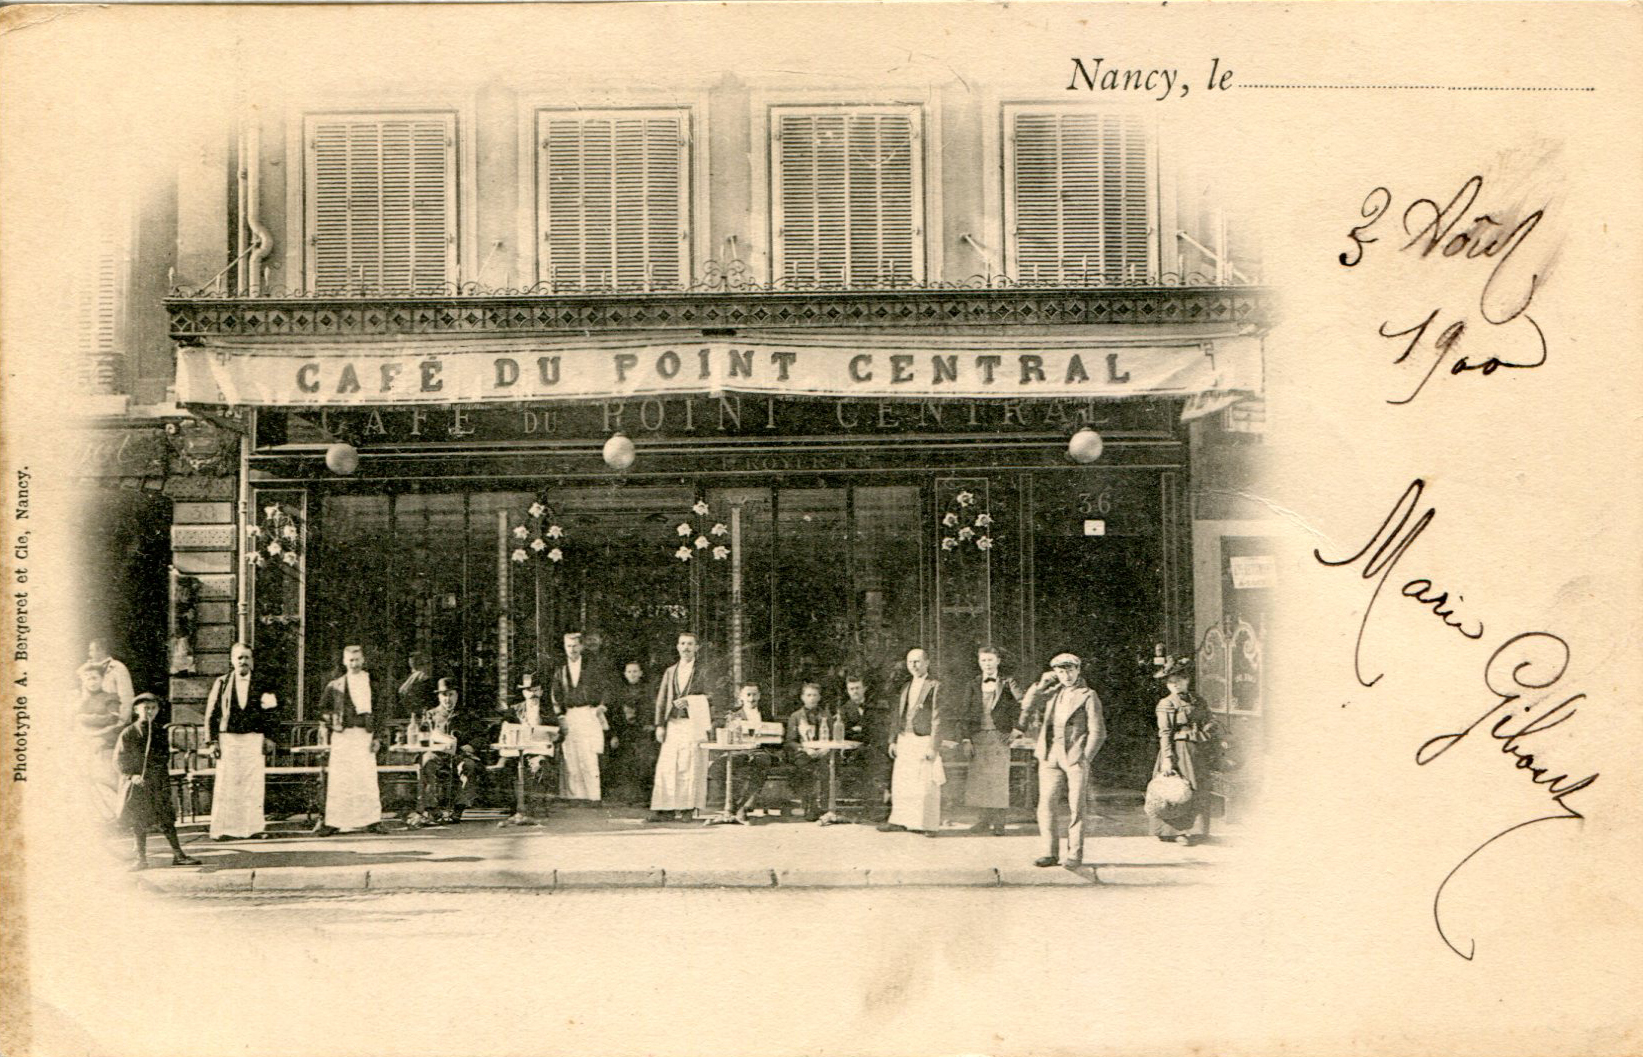 Nancy, le
3 Août
1900
CAFÉ DU POINT CENTRAL
CAFÉ DU POINT CENTRAL
ROYER
36
Marie
Phototypie A. Bergeret et Cie, Nancy.